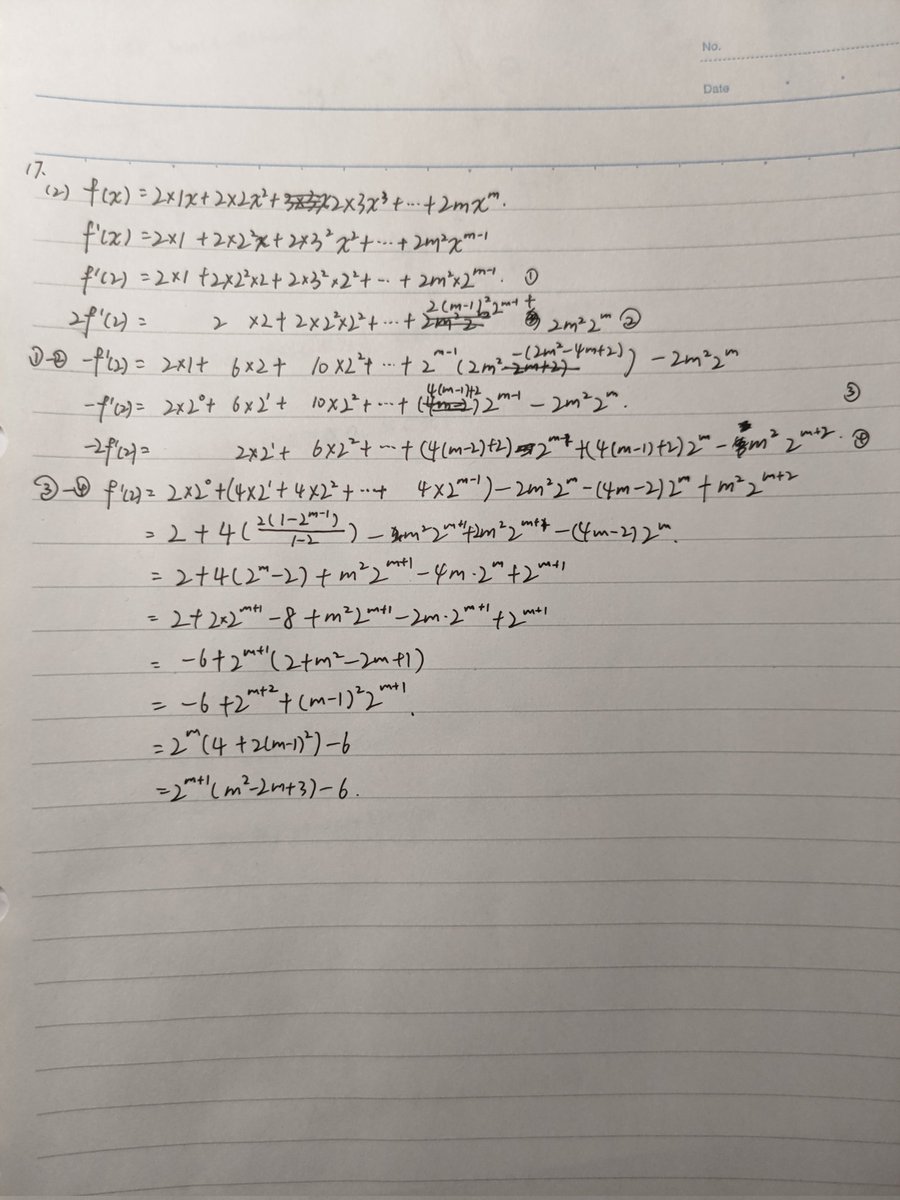 No.
Date
17.
(2) f(x) = 2×1x + 2×2x² + 2×3x³ + ··· + 2mx^m.
f'(x) = 2×1 + 2×2²x + 2×3²x² + ··· + 2m²x^{m-1}
f'(2) = 2×1 + 2×2²×2 + 2×3²×2² + ··· + 2m²×2^{m-1}. ①
2f'(2) = 2 ×2 + 2×2²×2² + ··· + 2(m-1)²2^{m-1} + 2m²2^m ②
①-② -f'(2) = 2×1 + 6×2 + 10×2² + ··· + 2^{m-1}(2m² -(2m²-4m+2)) - 2m²2^m
-f'(2) = 2×2⁰ + 6×2¹ + 10×2² + ··· + (4(m-1)+2)2^{m-1} - 2m²2^m. ③
-2f'(2) = 2×2¹ + 6×2² + ··· + (4(m-2)+2) 2^{m-1} + (4(m-1)+2)2^m - m² 2^{m+2}. ④
③-④ f'(2) = 2×2⁰ + (4×2¹ + 4×2² + ··· + 4×2^{m-1}) - 2m²2^m - (4m-2)2^m + m²2^{m+2}
= 2 + 4(\frac{2(1-2^{m-1})}{1-2}) - m²2^{m+1} + 2m²2^{m+1} - (4m-2)2^m.
= 2 + 4(2^m - 2) + m²2^{m+1} - 4m·2^m + 2^{m+1}
= 2 + 2×2^{m+1} - 8 + m²2^{m+1} - 2m·2^{m+1} + 2^{m+1}
= -6 + 2^{m+1}(2 + m² - 2m + 1)
= -6 + 2^{m+2} + (m-1)²2^{m+1}.
= 2^m(4 + 2(m-1)²) - 6
= 2^{m+1}(m² - 2m + 3) - 6.